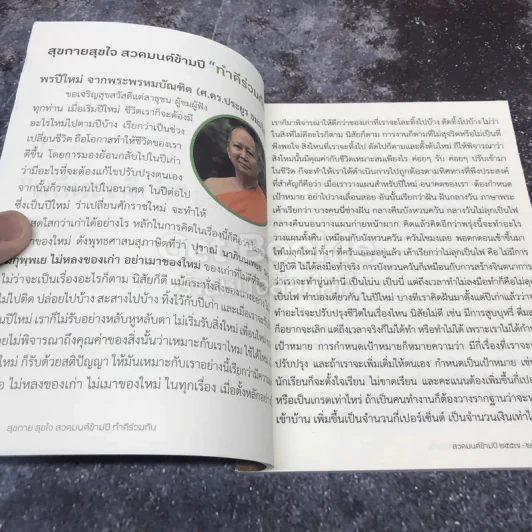 สุขกายสุขใจ สวดมนต์ข้ามปี "ทำดีร่วมกัน
พรปีใหม่ จากพระพรหมบัณฑิต (ศ.ดร.ประยูร
ขอเจริญสุขสวัสดีแด่สาธุชน ผู้ชมผู้ฟัง
ทุกท่าน เมื่อเริ่มปีใหม่ ชีวิตเราก็จะต้องมี
อะไรใหม่ไปตามปีบ้าง เรียกว่าเป็นช่วง
เปลี่ยนชีวิต ถือโอกาสทำให้ชีวิตของเรา
ดีขึ้น โดยการมองย้อนกลับไปในปีเก่า
ว่ามีอะไรที่จะต้องแก้ไขปรับปรุงตนเอง
จากนั้นก็วางแผนไปในอนาคต ในปีต่อไป
ซึ่งเป็นปีใหม่ ว่าเปลี่ยนศักราชใหม่ จะทำให้
สดใสกว่าเก่าได้อย่างไร หลักในการคิดในเรื่องนี้ก็คือ
ของใหม่ ดังพุทธศาสนสุภาษิตที่ว่า ปุราณํ นาภินนฺเทยฺย
ไม่หลงของเก่า อย่าเมาของใหม่ ของเก่าที่มี
ไม่ว่าจะเป็นเรื่องอะไรก็ตาม นิสัยก็ดี แม้กระทั่งสิ่งของบางอย่าง
ไปติด ปล่อยไปบ้าง สะสางไปบ้าง ทิ้งไว้กับปีเก่า และเมื่อเรา
ปีใหม่ เราก็ไม่รับอย่างหลับหูหลับตา ไม่เริ่มรับสิ่งใหม่ เพื่อน
ไม่พิจารณาถึงคุณค่าของสิ่งนั้นว่าเหมาะกับเราไหม ใช้ได้ไหม
ใหม่ ก็รับด้วยสติปัญญา ให้มันเหมาะกับเราอย่างนี้เรียกว่ามีความ
ไม่หลงของเก่า ไม่เมาของใหม่ ในทุกเรื่อง เมื่อตั้งหลักอย่าง
สุขกาย สุขใจ สวดมนต์ข้ามปี ทำดีร่วมกัน
เราก็มาพิจารณาให้ดีกว่าของเก่าที่เราจะโละทิ้งไปบ้าง ตัดทิ้งไปบ้าง ไม่ว่า
ในสิ่งที่ไม่ดีอะไรก็ตาม นิสัยก็ตาม การงานก็ตามที่ไม่สุจริตหรือไม่เป็นที่
พึงพอใจ สิ่งไหนที่เราจะทิ้งไป ตัดไปก็ตามและตั้งต้นใหม่ ก็ให้พิจารณาว่า
สิ่งใหม่นั้นมีคุณค่ากับชีวิตเหมาะสมเพียงไร ค่อยๆ รับ ค่อยๆ ปรับเข้ามา
ในชีวิต ก็จะทำให้เราได้ดำเนินการไปถูกต้องตามทิศทางที่พึงประสงค์
ที่สำคัญก็คือว่า เมื่อเราวางแผนสำหรับปีใหม่ อนาคตของเรา ต้องกำหนด
เป้าหมาย อย่าไปวางเลื่อนลอย ฉันนั้นเรียกว่าฝัน ฝันกลางวัน ภาษาพระ
เค้าเรียกว่า บางคนนี่ช่างฝัน กลางคืนบังหวนควัน กลางวันไม่ลุกเป็นไฟ
กลางคืนนอนวางแผนก่ายหน้าผาก คิดแล้วคิดอีกว่าพรุ่งนี้จะทำอะไร
วางแผนทั้งคืน เหมือนกับบังหวนควัน ควันโขมงเลย พอตกตอนเช้าขึ้นมา
ไฟไม่ลุกไหม้ ทั้งๆ ที่ควันเยอะอยู่แล้ว เค้าเรียกว่าไม่ลุกเป็นไฟ คือ ไม่มีการ
ปฏิบัติ ไม่ได้ลงมือทำจริง การบังหวนควันก็เหมือนกับการสร้างจินตนาการ
เป็นไฟ ทำนองเดียวกัน ในปีใหม่ บางทีเราคิดฝันมาตั้งแต่ปีเก่าแล้วว่า
ทำอะไรจะปรับปรุงชีวิตในเรื่องไหน นิสัยไม่ดี เช่น มีการสูบบุหรี่ ดื่ม
ก็อยากจะเลิก แต่ถึงเวลาจริงก็ไม่ได้ทำ หรือทำไม่ได้ เพราะเราไม่ได้กำหนด
เป้าหมาย การกำหนดเป้าหมายก็หมายความว่า มีกี่เรื่องที่เราจะ
ปรับปรุง และถ้าเราจะเพิ่มเติมให้ตนเอง กำหนดเป็นเป้าหมาย เช่น
นักเรียนก็จะตั้งใจเรียน ไม่ขาดเรียน และคะแนนต้องเพิ่มขึ้นกี่เปอร์
หรือเป็นเกรดเท่าไหร่ ถ้าเป็นคนทำงานก็ต้องวางรากฐานว่าจะหา
เข้าบ้าน เพิ่มขึ้นเป็นจำนวนกี่เปอร์เซ็นต์ เป็นจำนวนเงินเท่าไ
สวดมนต์ข้ามปี ๒๕๕๗ -